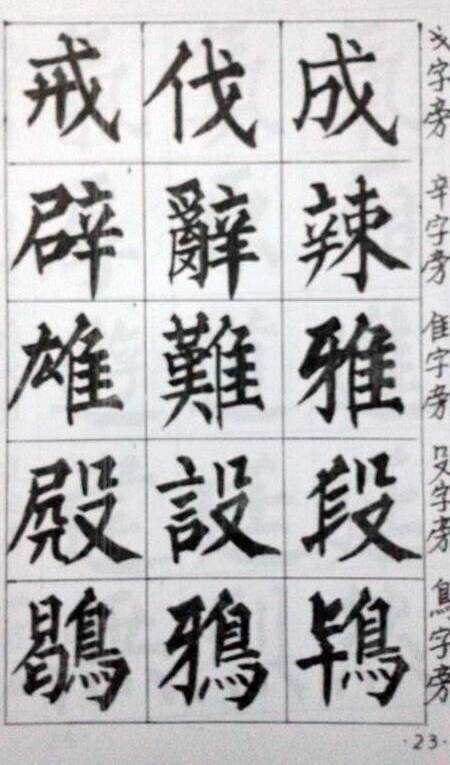 戈字旁
成伐戒
辛字旁
辣辭辟
隹字旁
雅難雄
殳字旁
段設殿
鳥字旁
鴉鶡
·23·